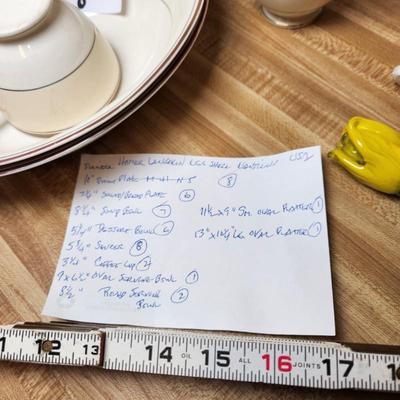 Homer Laughlin Egg Shell Nautilus USA
10" Plate 8
7 1/4" Salad/Bread Plate 6
8 1/4" Soup Bowl 7
5 1/4" Dessert Bowl 6
5 3/4" Saucer 8
3 1/4" Coffee Cup
9 x 6 1/2" Oval Serving Bowl 1
8 1/2" Round Serving Bowl 2
11 1/2 x 9" Sm. Oval Platter 1
13" x Lg Oval Platter 1
12 13 14 OIL 15 ALL 16 JOINTS 17